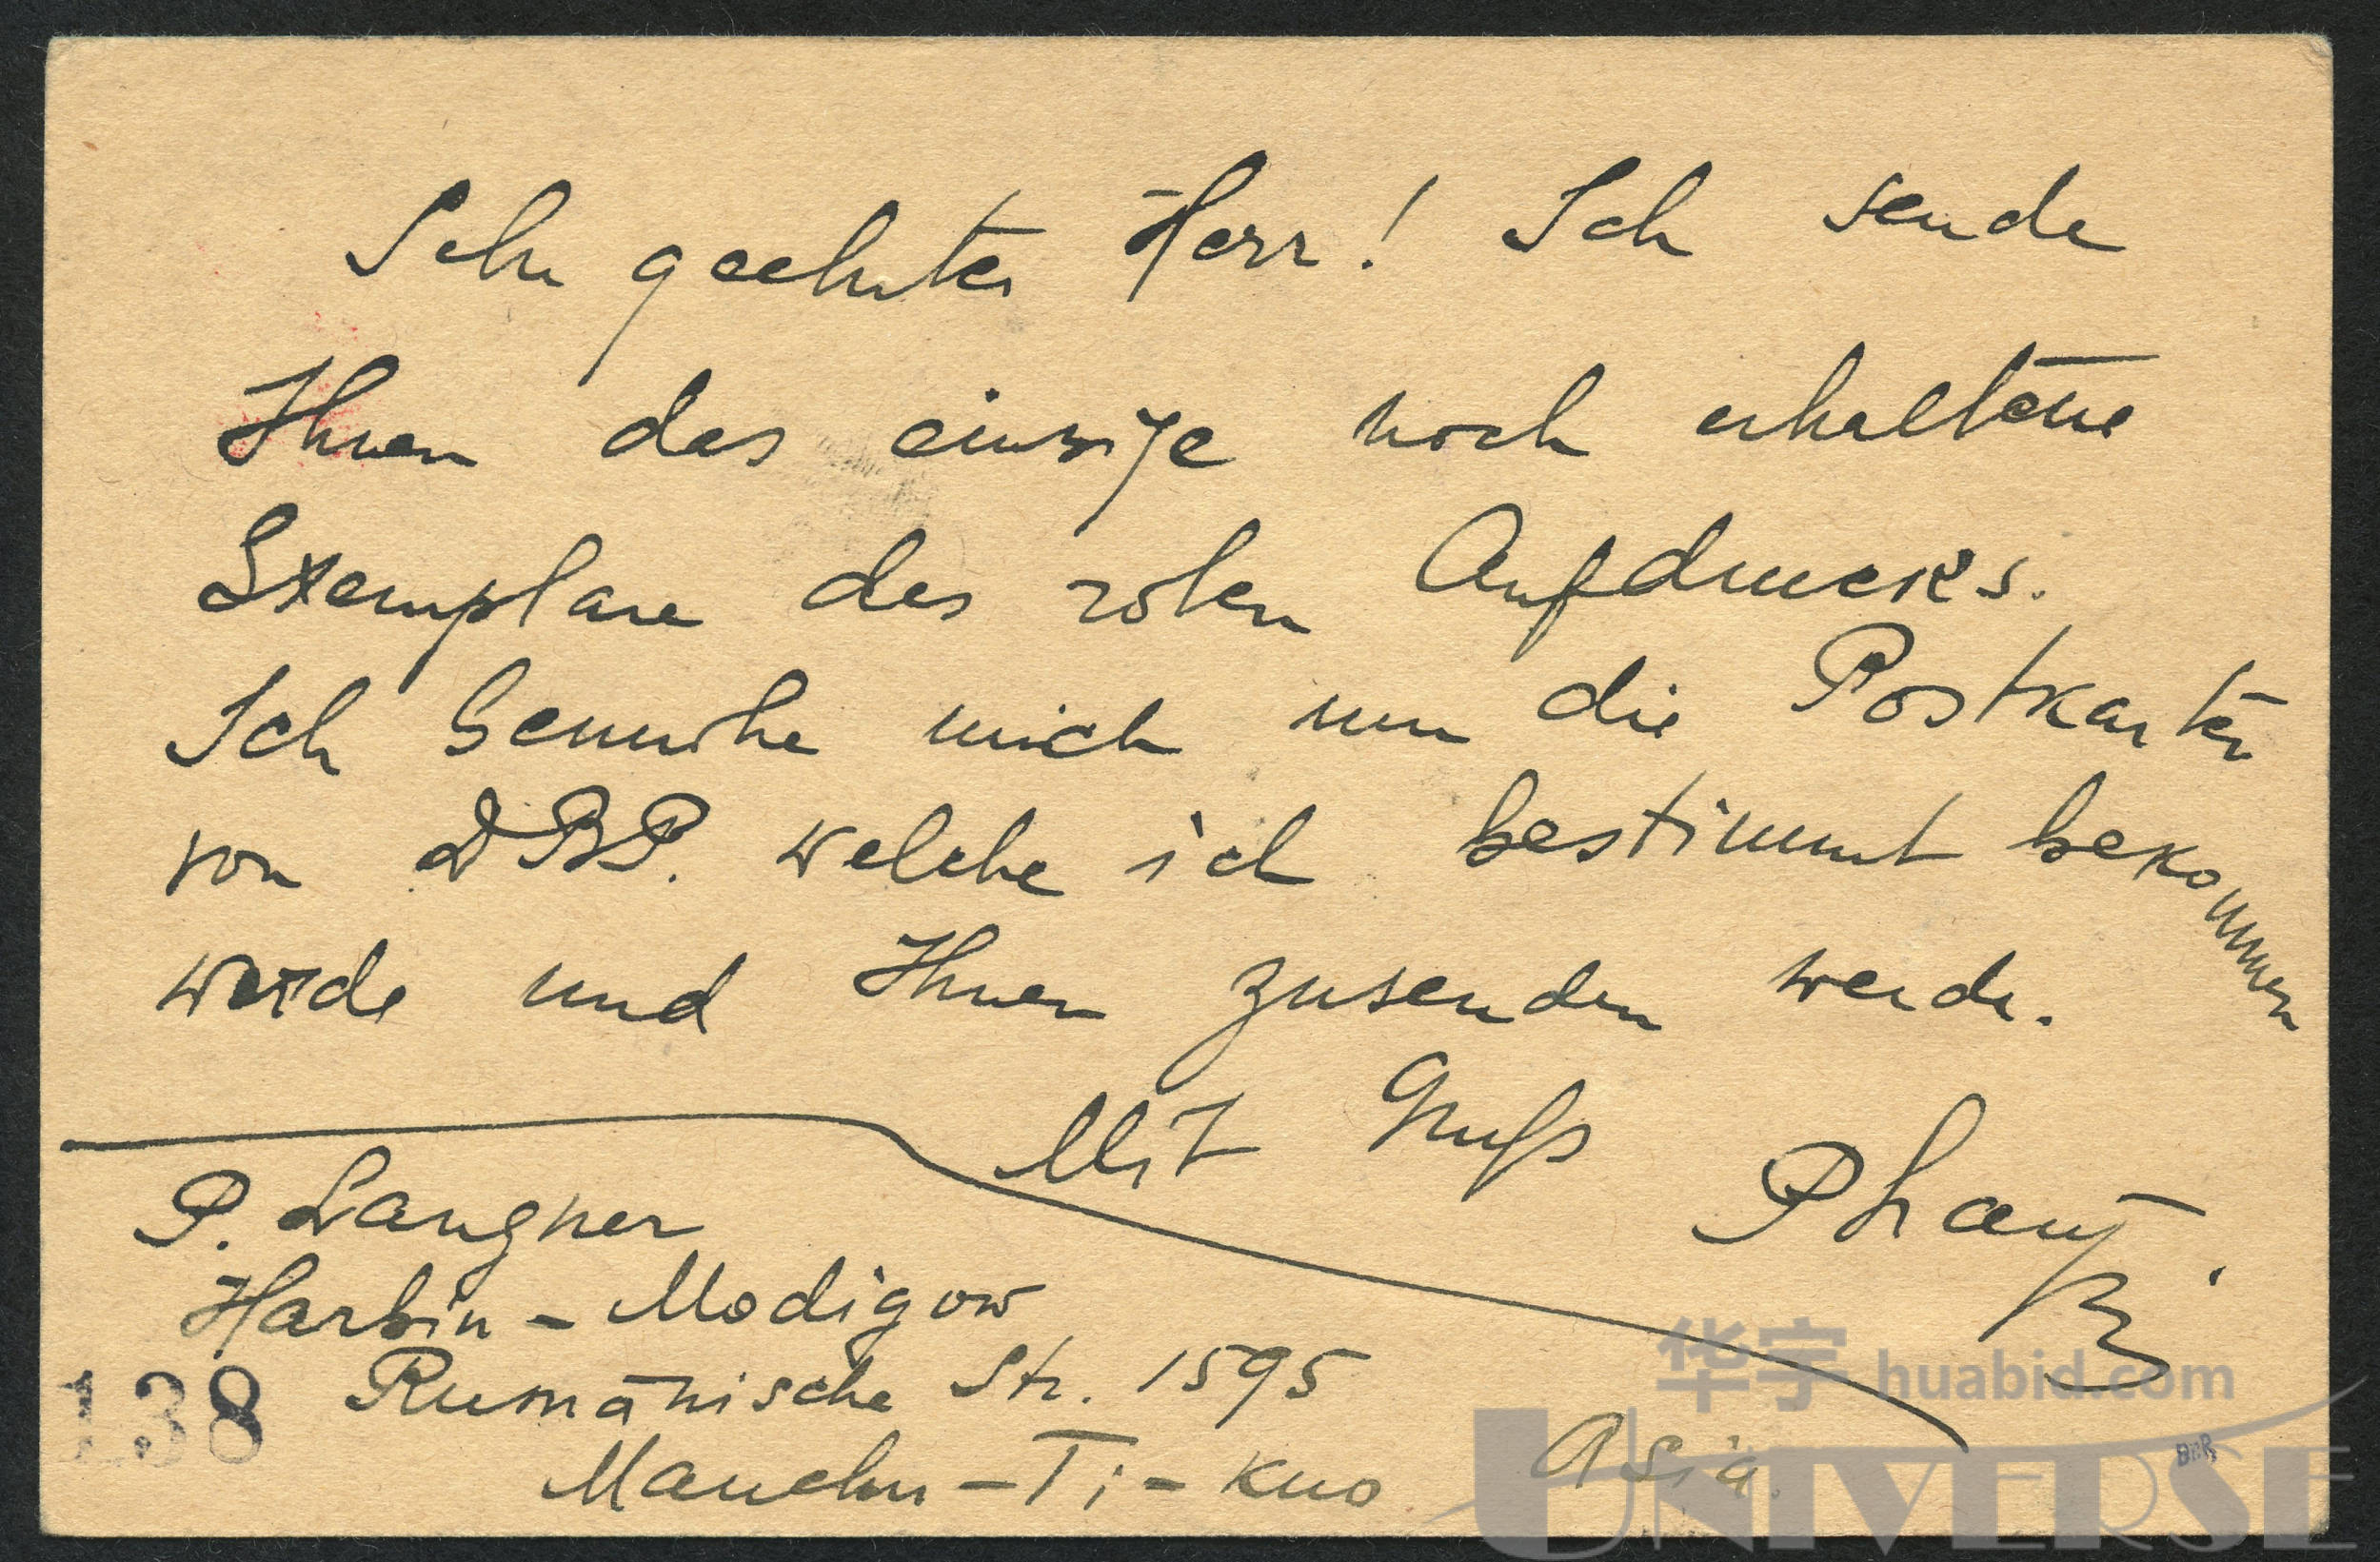 Sehr geehrter Herr! Ich sende
Ihnen das einzige noch erhaltene
Exemplare des roten Aufdrucks.
Ich bemühe mich um die Postkarten
von DBP. welche ich bestimmt bekommen
werde und Ihnen zusenden werde.
Mit Gruß
P. Langner
Harbin - Modigow
Rumänische Str. 1595
Manchu - Ti - Kuo Asia.
138
华宇 huabid.com
UNIVERSE